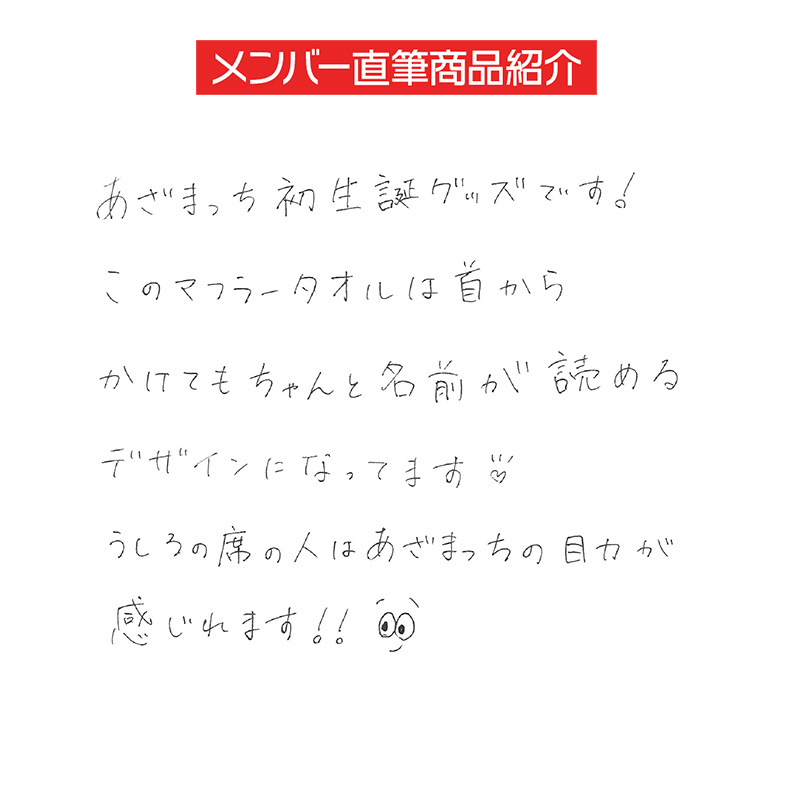 メンバー直筆商品紹介
あざまっち初生誕グッズです!
このマフラータオルは首から
かけてもちゃんと名前が読める
デザインになってます♡
うしろの席の人はあざまっちの目力が
感じれます!!